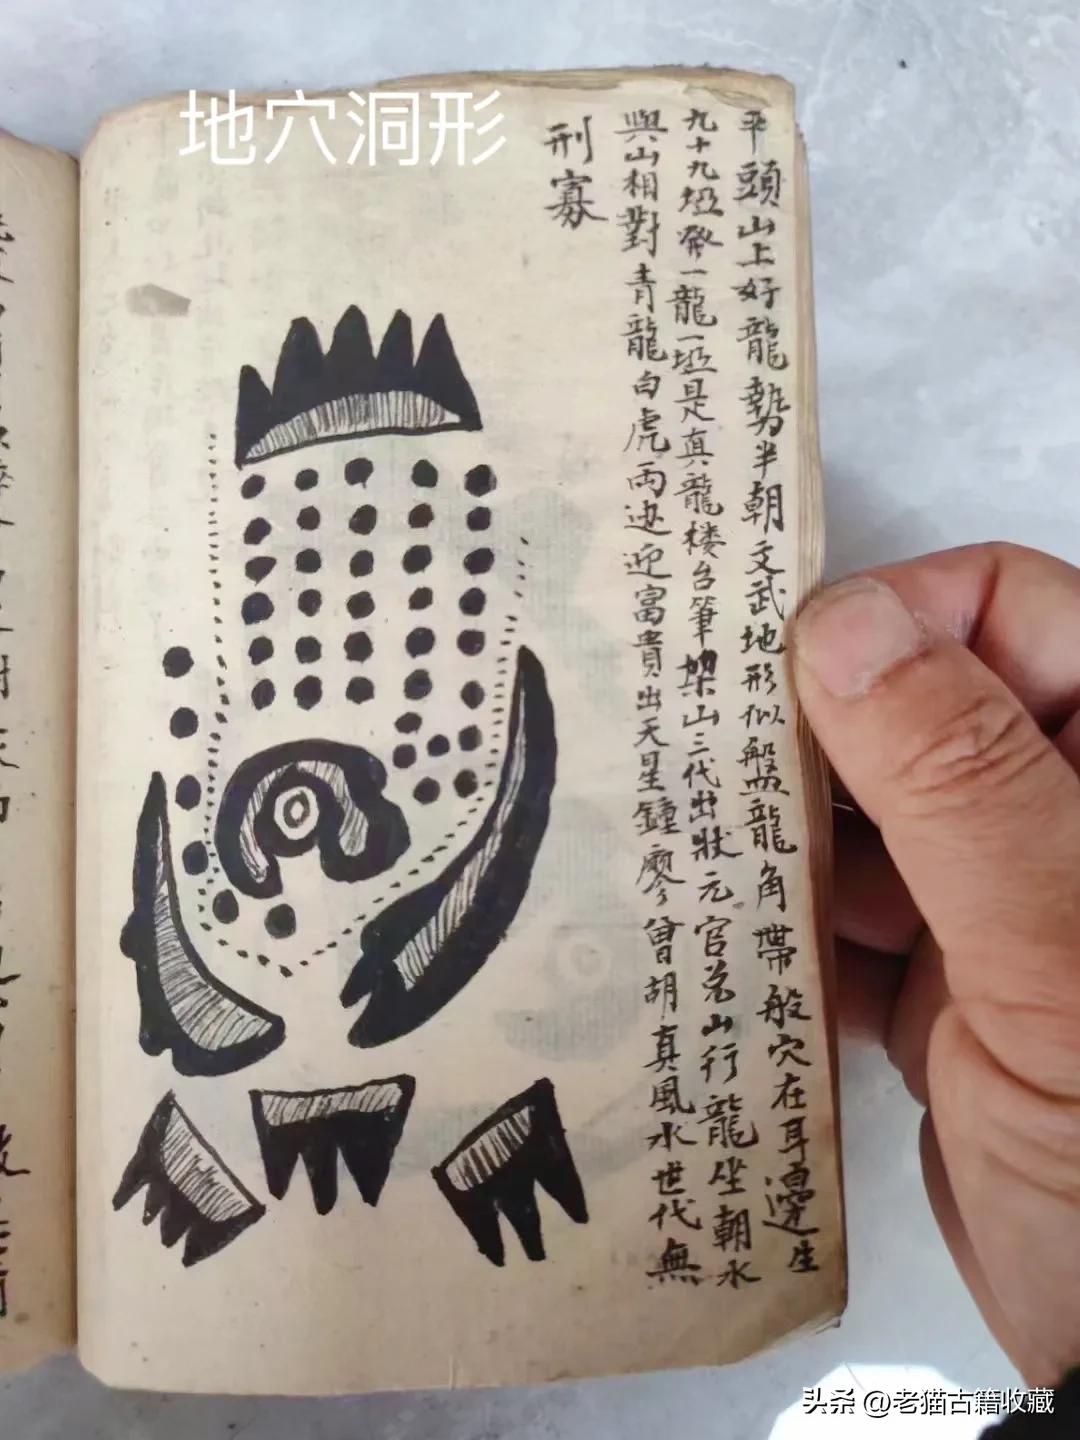 地穴洞形
平頭山上好龍勢半朝文武地形似盤龍角帶般穴在耳邊生
九十九埡發一龍一埡是真龍楼台筆架山三代出狀元官兑山行龍坐朝水
與山相對青龍白虎両边迎富貴出天星鐘廖曾胡真風水世代無
刑寡
头条 @老猫古籍收藏